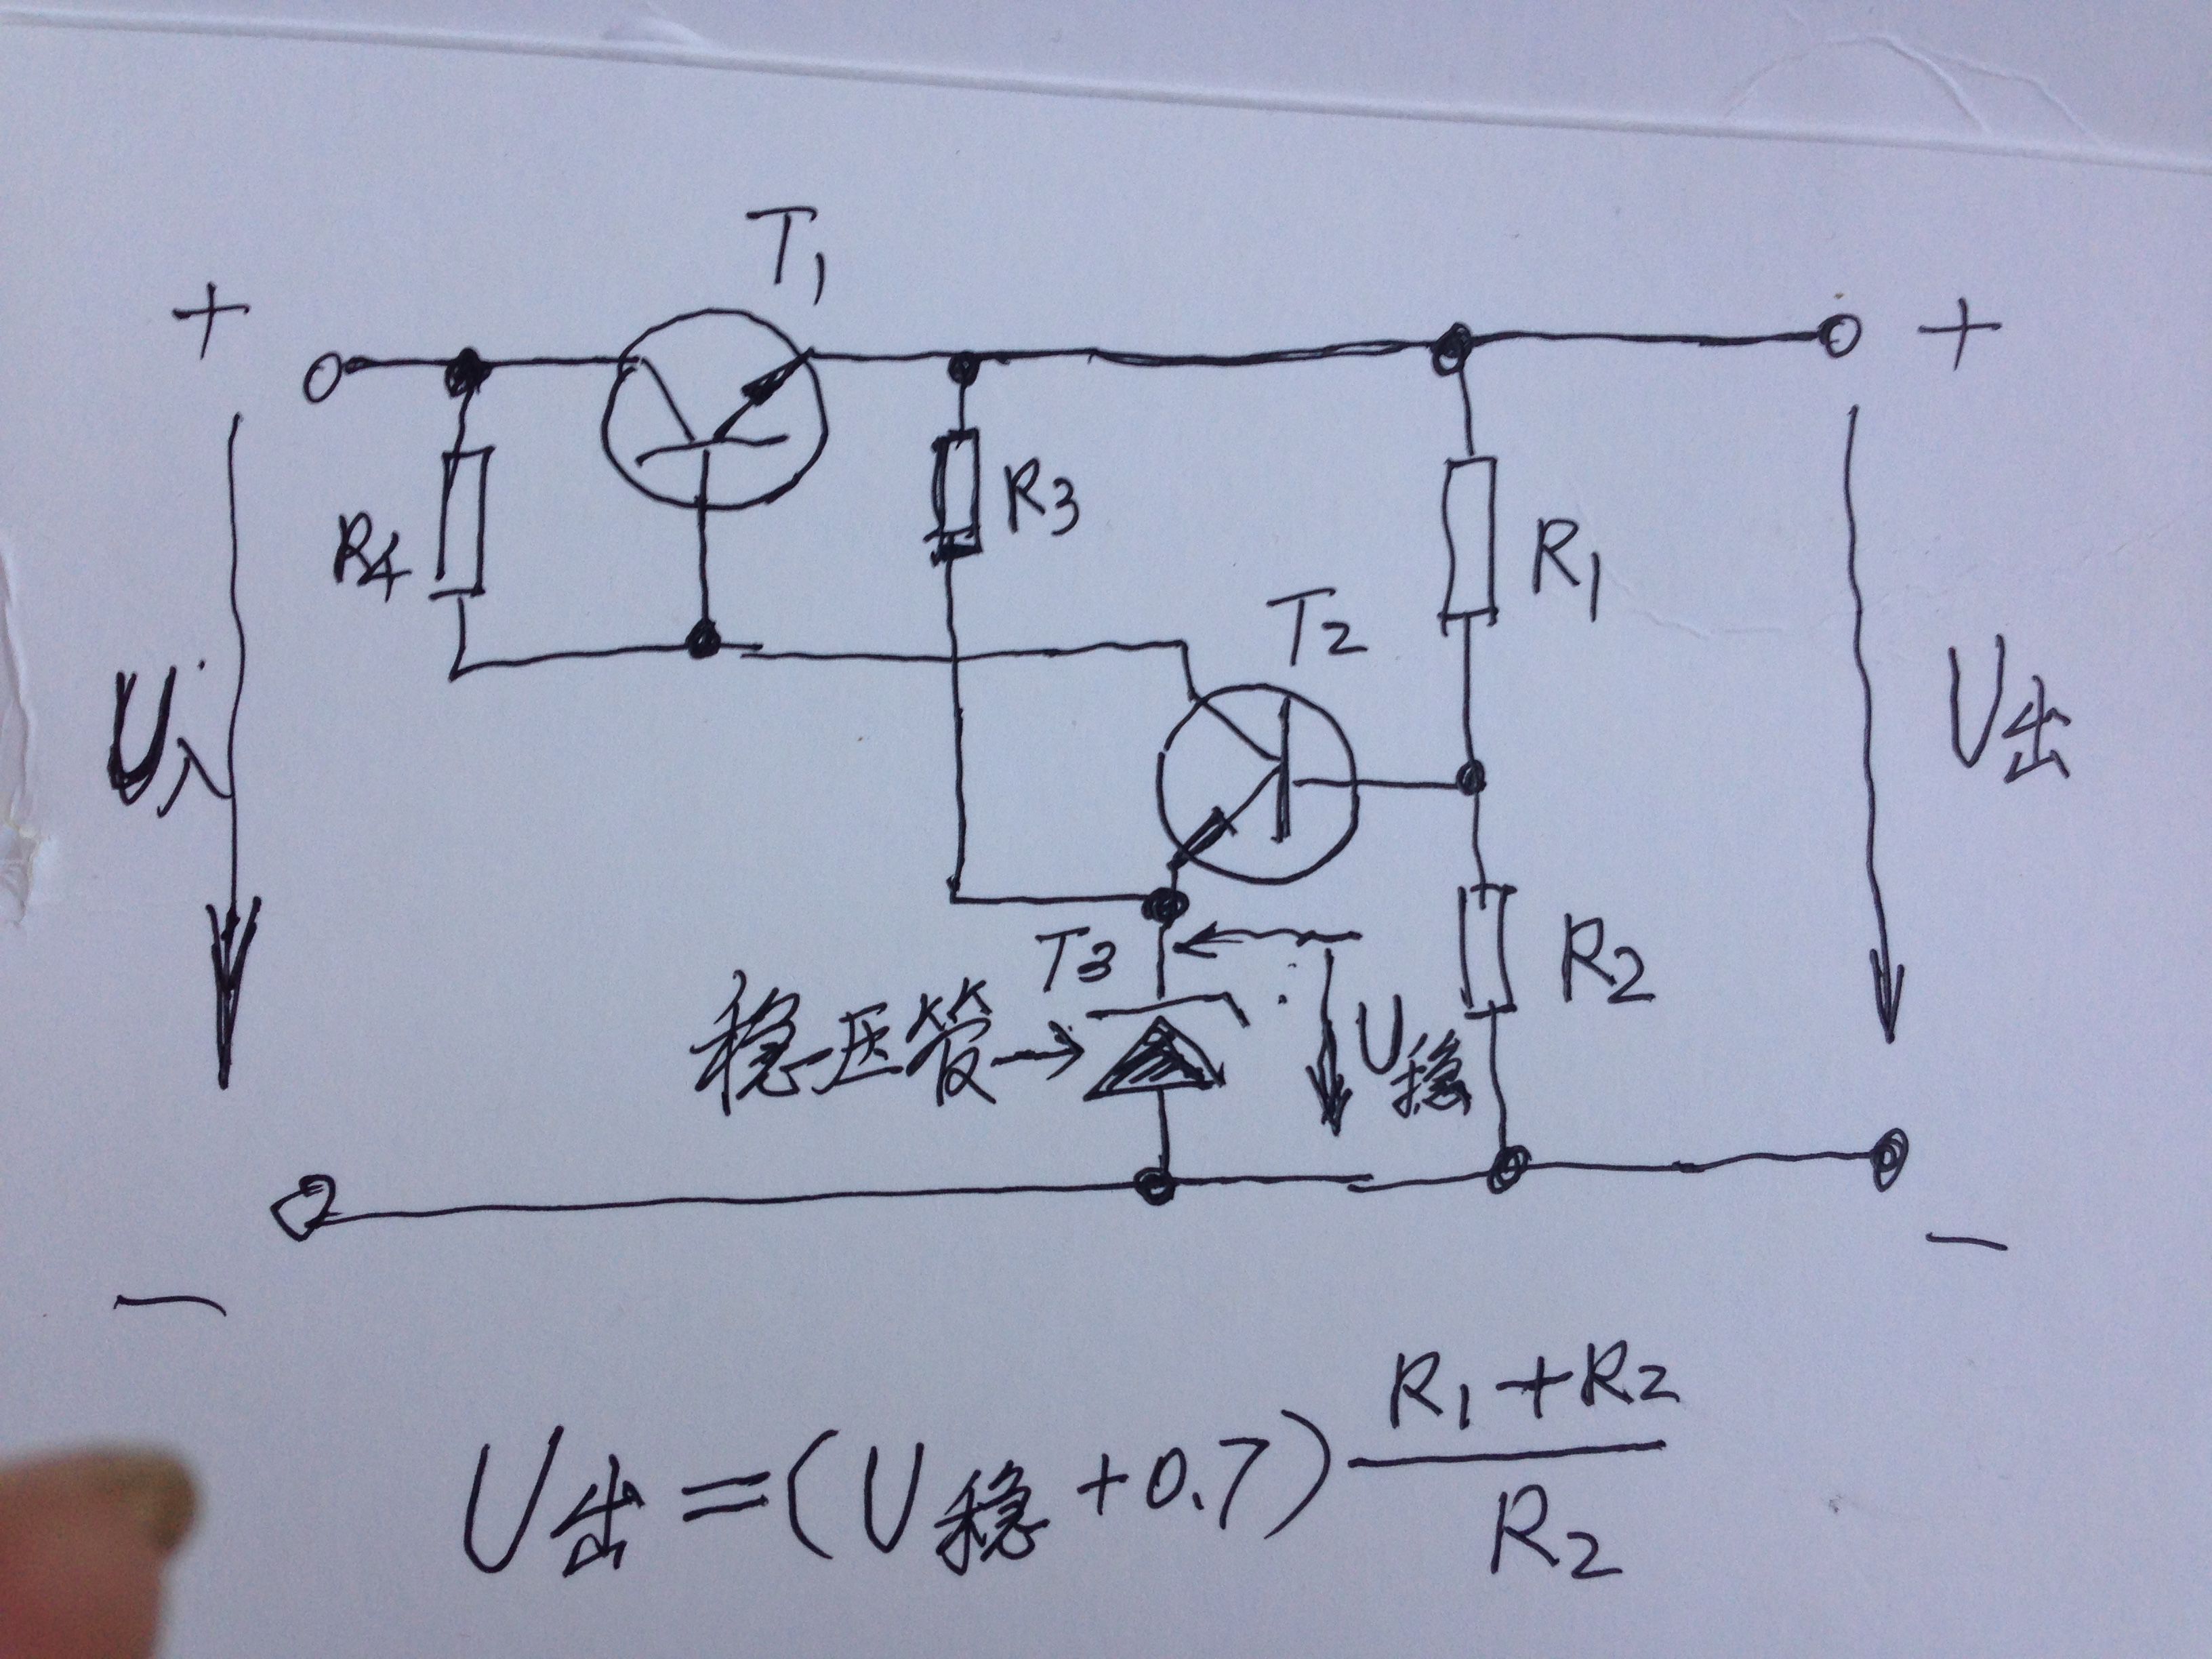 T1
+
+
R4
R3
R1
T2
U入
U出
T3
R2
稳压管→
U稳
−
−
U出=(U稳+0.7) (R1+R2)/R2